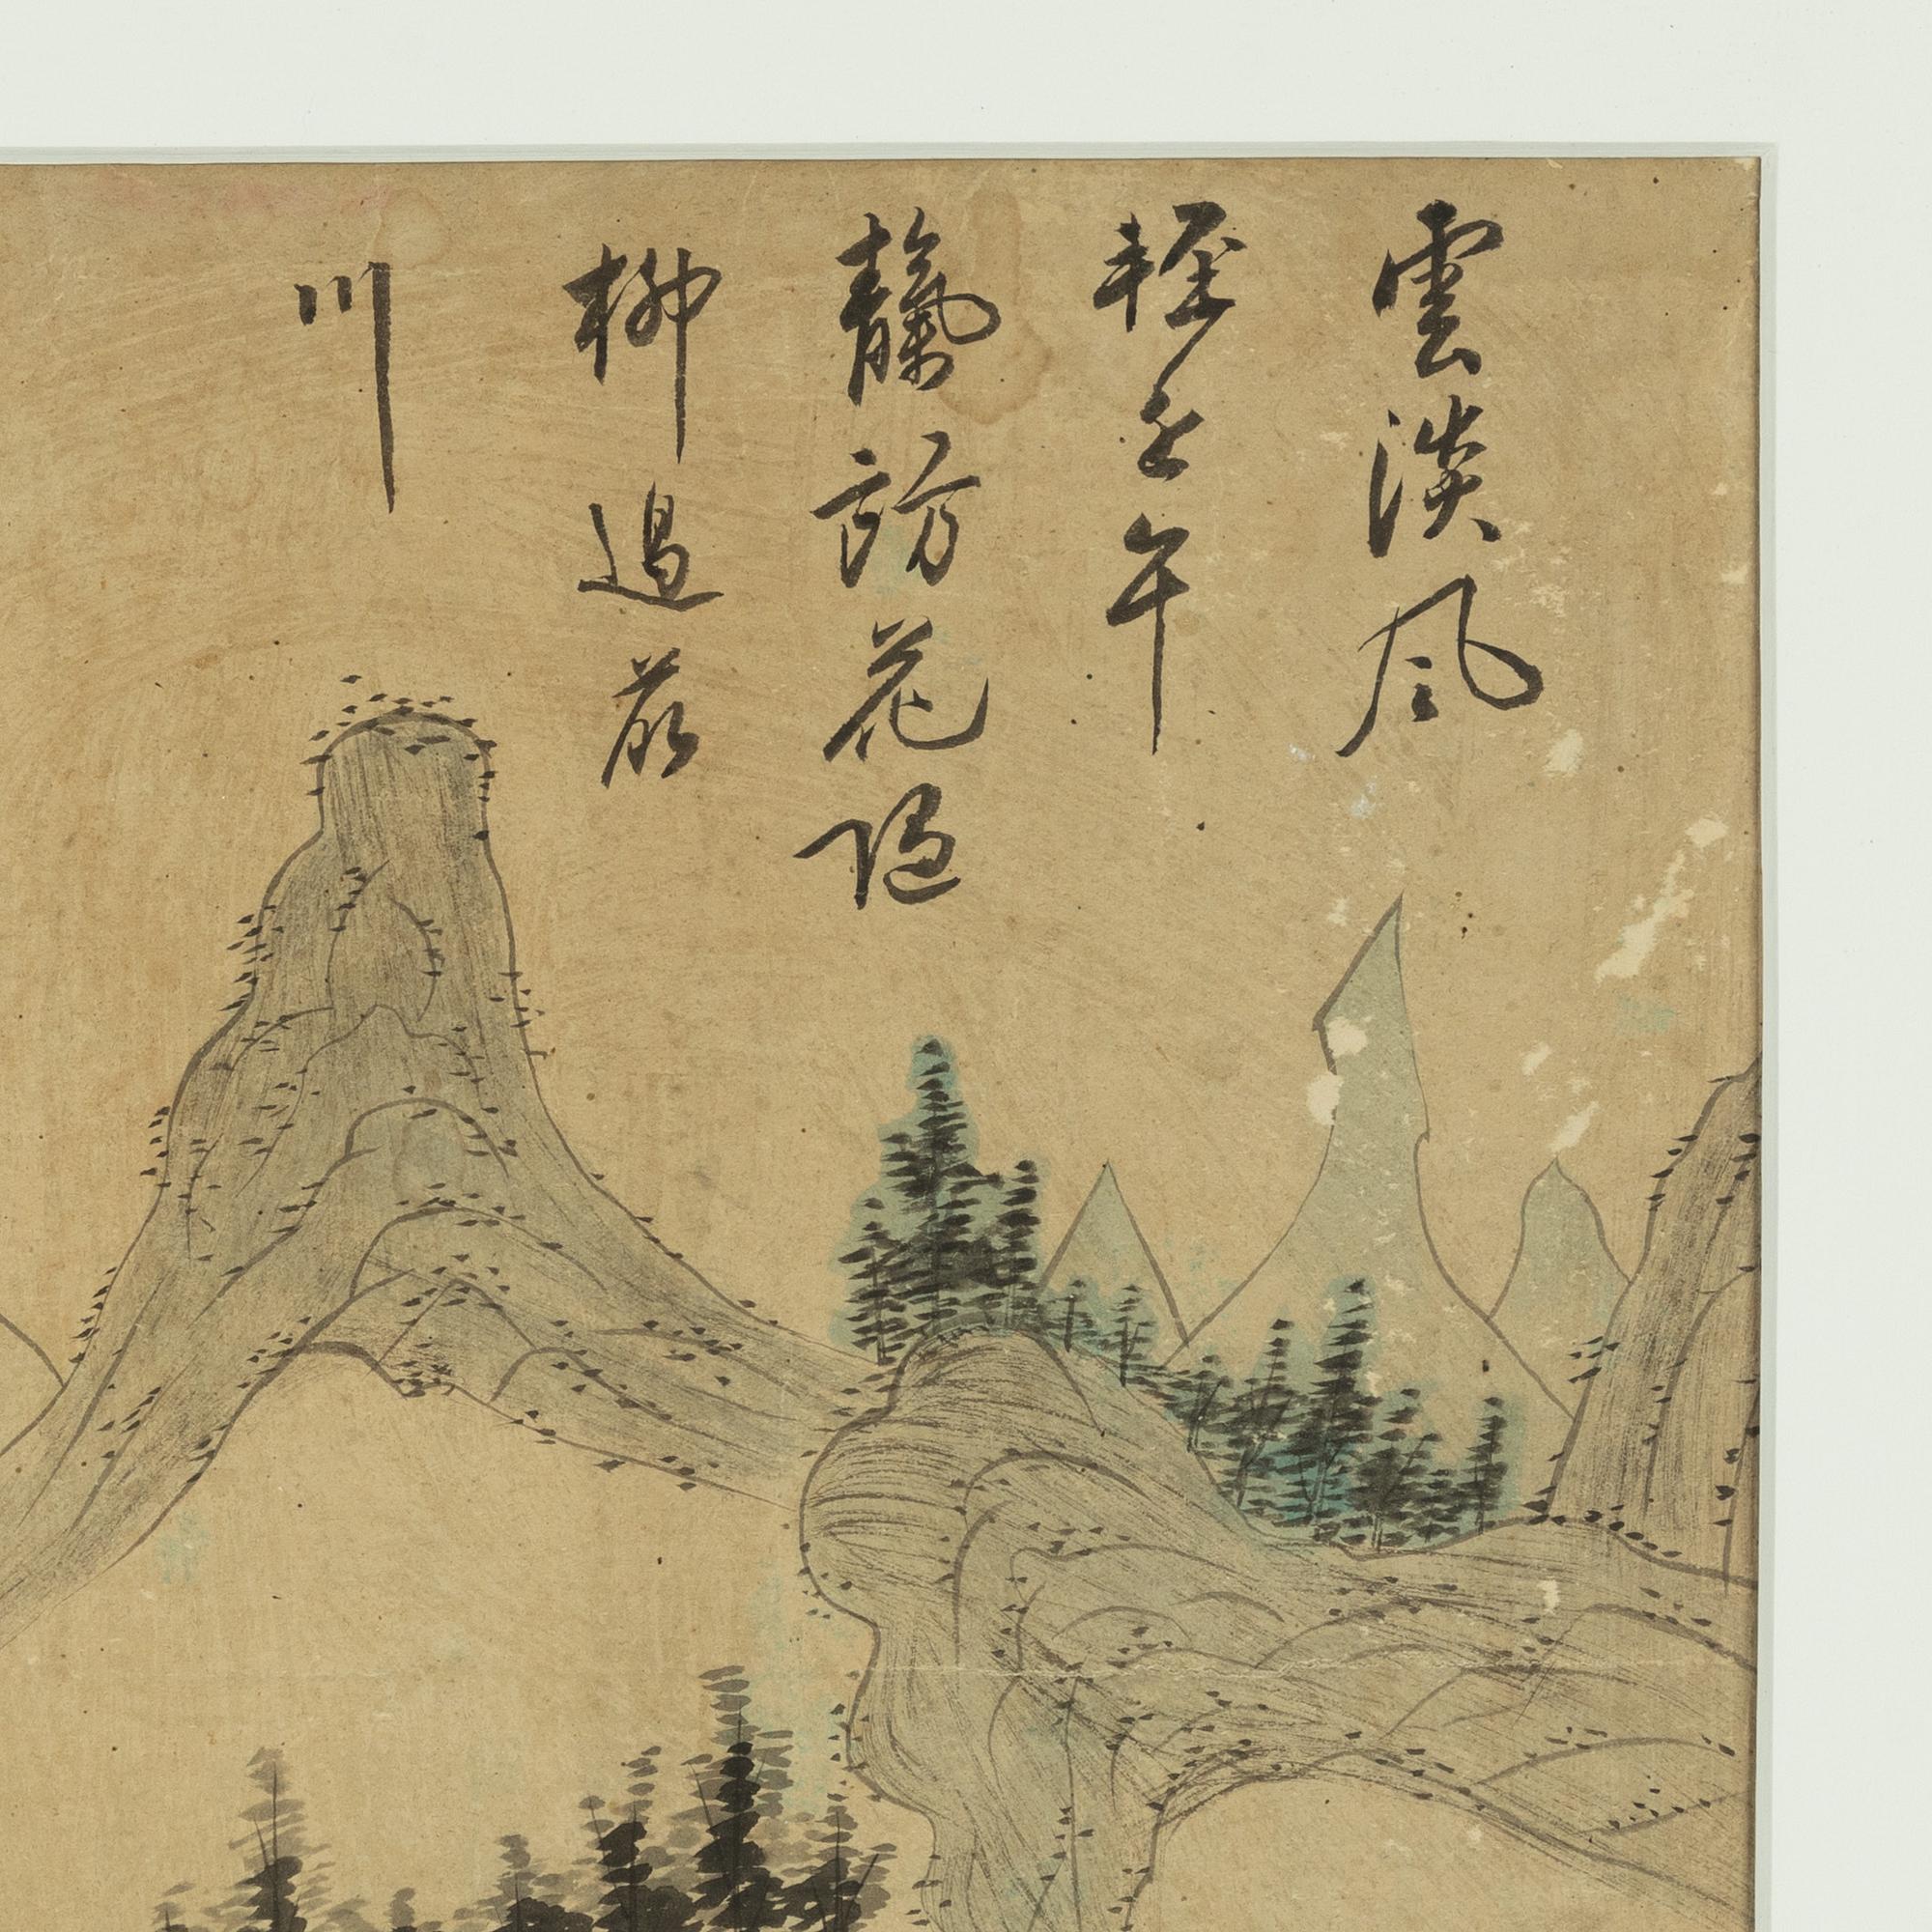 雲淡風
輕近午
靝訪花隨
柳過前
川